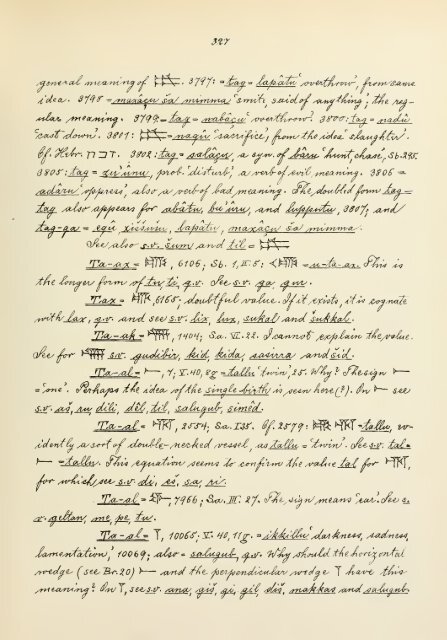 327
general meaning of 𒋳. 3797: = tag = lapâtu 'overthrow', from same
idea. 3798 = maxâçu ša mimma 'smite, said of anything', the reg-
ular meaning. 3799 = tag = mabâçu 'overthrow'. 3800: tag = nadû
'cast down'. 3801: = naqû 'sacrifice', from the idea 'slaughter'.
Cf. Hebr. 3802: tag = salâçu, a syn. of bâru 'hunt, chase', Sb. 245.
3805: tag = 'disturb', a verb of evil meaning. 3806 =
adâru 'oppress', also a verb of bad meaning. The doubled form tag =
tag also appears for abâtu, bu'uru, and lupputu, 3807; and
tag-ga = egû, lapâtu, maxâçu ša mimma.
See also s.v. šum and til =
Ta-ax = , 6106; Sb. 1, II. 5: = u-ta-ax. This is
the longer form of tu, ti, q.v. See s.v. ga, gur.
Tax = 6165, doubtful value. If it exists, it is cognate
with lax, q.v. and see s.v. lix, lux, sukal and šukkal.
Ta-ak = , 1404; Sa. VI. 22. I cannot explain the value.
See for s.v. gudibir, kid, kida, sasirra and šid.
Ta-al = , 1, V. 40, 8g = tallu 'twin', 25. Why? The sign
= 'one'. Perhaps the idea of the single birth is seen here (?). On see
s.v. aš, ru, dili, dêl, til, salugub, simêd.
Ta-al = , 2554, Sa. I 35. Cf. 2579: = tallu, ev-
idently a sort of double-necked vessel, as tallu = 'twin'. See s.v. tal =
= tallu. This equation seems to confirm the value tal for ,
for which see s.v. di, , sa, .
Ta-al = , 7966; Sa. III. 27. The sign means 'ear'. See s.
v. geltan, me, pe, tu.
Ta-al = 𒁹, 10065; V. 40, 11g. = ikkillu 'darkness, sadness,
lamentation', 10069; also = salugub, q.v. Why should the horizontal
wedge (see Br. 20) and the perpendicular wedge 𒁹 have this
meaning? On 𒁹, see s.v. ana, giš, gi, gil, diš, makkas and salugub.